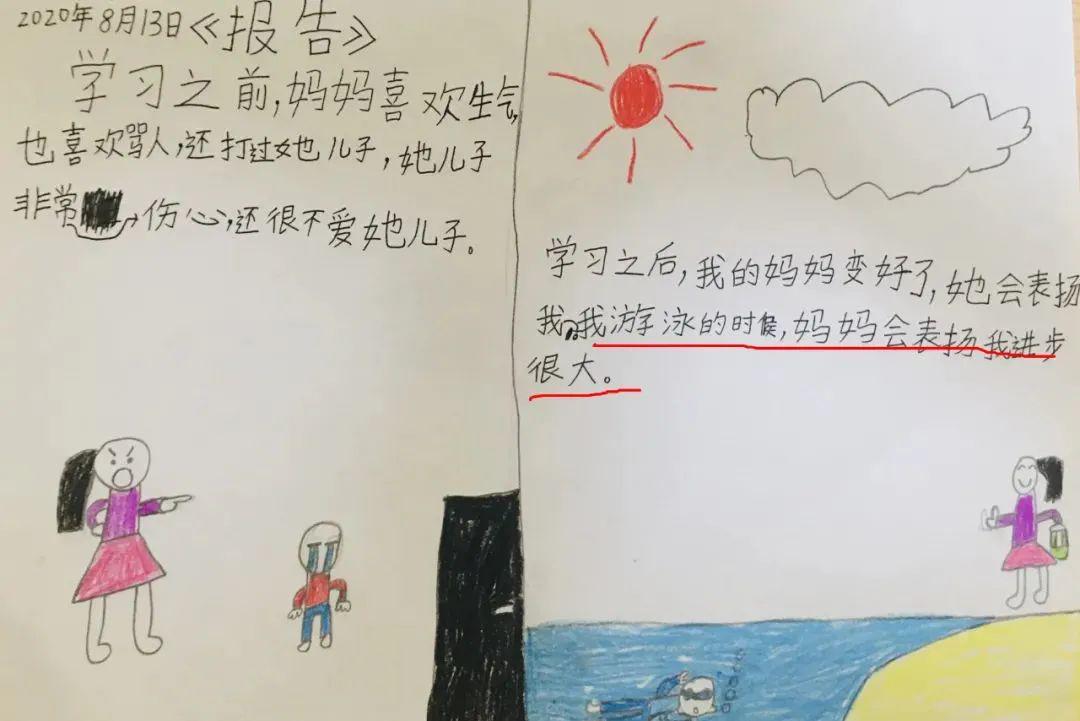 2020年8月13日《报告》
学习之前,妈妈喜欢生气,
也喜欢骂人,还打过她儿子,她儿子
非常伤心,还很不爱她儿子。
学习之后,我的妈妈变好了,她会表扬
我。我游泳的时候,妈妈会表扬我进步
很大。